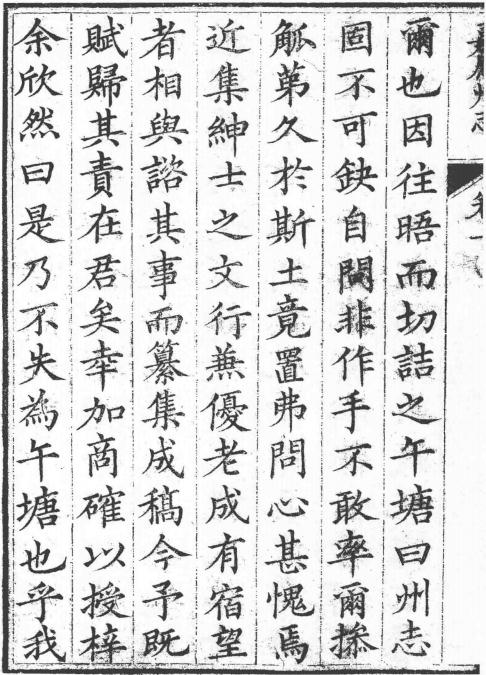 州志 卷一
爾也因往晤而切詰之午塘曰州志
固不可缺自閱非作手不敢率爾操
觚第久於斯土竟置弗問心甚愧焉
近集紳士之文行兼優老成有宿望
者相與諮其事而纂集成稿今予既
賦歸其責在君矣幸加商確以授梓
余欣然曰是乃不失為午塘也乎我